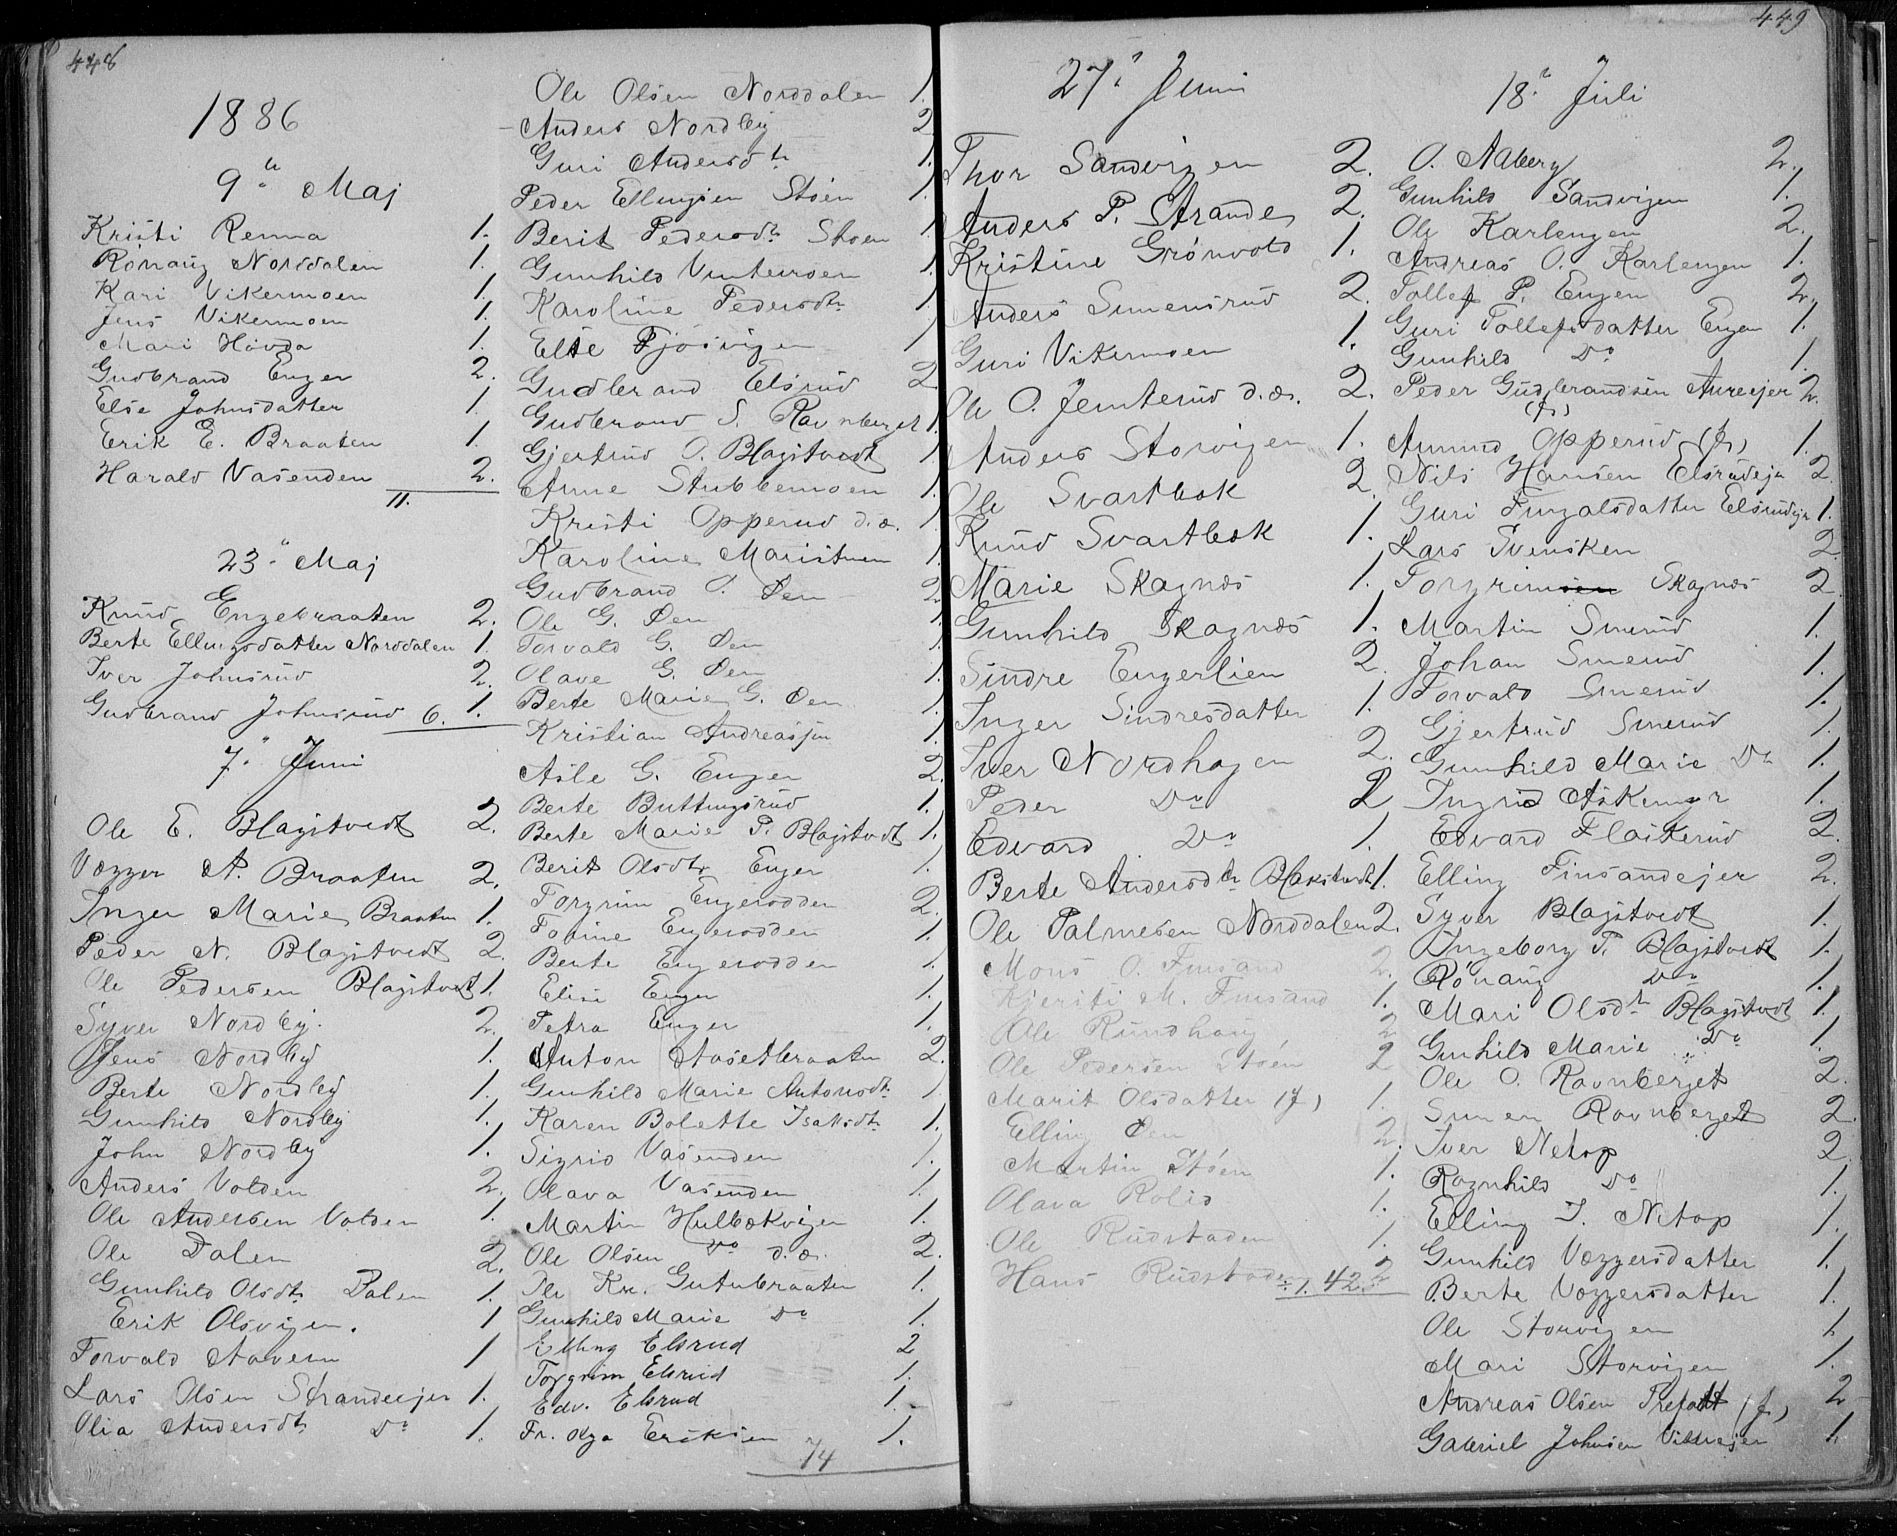 448
1886
9de Maj
Kristi Renna 1.
Rønaug Norddalen 1.
Kari Vikermoen 1.
Jens Vikermoen 1.
Mari Hovda 1.
Gudbrand Enger 2.
Else Johnsdatter 1
Erik E. Braaten 1.
Harald Vasenden 2.
11.
23de Maj
Knud Engebraaten 2.
Berte Ellingsdatter Norddalen 1.
Iver Johnsrud 2.
Gudbrand Johnsrud 6. 1.
7de Juni
Ole E. Blagstvedt 2.
Vegger A. Braaten 2.
Inger Marie Braaten 1.
Peder N. Blagstvedt 2.
Ole Pedersen Blagstvedt 1.
Syver Nordby. 2.
Jens Nordby 1.
Berte Nordby 1.
Gunhild Nordby 1.
John Nordby 1.
Anders Volden 2.
Ole Andersen Volden 1.
Ole Dalen 2.
Gunhild Olsdtr Dalen 1.
Erik Olsvigen. 1
Torvald Stavern 1
Lars Olsen Strandeejer 1.
Olia Andersdtr Do 1.
Ole Olsen Norddalen 1.
Anders Nordby 2
Guri Andersdtr 1.
Peder Ellingsen Støen 1.
Berit Pedersdtr Støen 1
Gunhild Vinterroen 1
Karoline Pedersdtr 1
Else Fjøsvigen 1
Gudbrand Elsrud 2
Gudbrand S. Ravnberget 1.
Gjertrud O. Blagstvedt 1
Anne Stubbemoen 1
Kristi Opperud d.æ. 1
Karoline Maristuen 1
Gudbrand O. Øen 2
Ole G. Øen 1
Torvald G. Øen 1
Olave G. Øen 1
Berte Marie G. Øen 1
Kristian Andreassen 1
Asle G. Enger 2.
Berte Buttingsrud 1.
Berte Marie P. Blagstvedt 1.
Berit Olsdtr Enger 1.
Torgrim Engerodden 2.
Torine Engerodden 1.
Berte Engerodden 1.
Elise Enger 1.
Petra Enger 1.
Anton Aasetbraaten 2.
Gunhild Marie Antonsdtr 1
Karen Bolette Isaksdtr 1.
Sigrid Vasenden 1.
Olava Vasenden 1.
Martin Hulbækvigen 1.
Ole Olsen Do d.æ. 2.
Ole Kn. Gutubraaten 1.
Gunhild Marie Do 1.
Elling Elsrud 2
Torgrim Elsrud 1.
Edv. Elsrud 1.
Fr. Olga Eriksen 1.
74
449
27de Juni
Thor Sandvigen 2.
Anders P. Strande 2.
Kristine Grønvold 1.
Anders Simensrud 2.
Guri Vikermoen 1.
Ole O. Jemterud d.æ. 2.
Anders Storvigen 1.
Ole Svartbæk 2.
Knud Svartbæk 1.
Marie Skagnæs 1.
Gunhild Skagnæs 1.
Sindre Engerlien 2.
Inger Sindresdatter 1.
Iver Nordhagen 2.
Peder Do 2
Edvard Do 1.
Berte Andersdtr Blakstvedt 1.
Ole Palmesen Norddalen 2.
Mons O. Finsand 2.
Kjersti M. Finsand 1.
Ole Rundhaug 2
Ole Pedersen Støen 2
Marit Olsdatter (f) 1.
Elling Øen 2.
Martin Støen 1.
Olava Rolid 1.
Ole Rudstaden 1.
Hans Rudstaden 2
42.
18de Juli
O. Aaberg 2.
Gunhild Sandvigen 1.
Ole Karlengen 2.
Andreas O. Karlengen 1.
Tollef P. Engen 2.
Guri Tollefsdatter Engen 1.
Gunhild Do 1.
Peder Gudbrandsen Aureejer 2.
(f)
Amund Opperud (f) 1.
Nils Hansen Elsrudejer 2.
Guri Fingalsdatter Elsrudejer 1.
Lars Svensken 2.
Torgrimsen Skagnæs 2.
Martin Smerud 1.
Johan Smerud 1.
Torvald Smerud 1.
Gjertrud Smerud 1.
Gunhild Marie Do 1.
Ingrid Askengr 1.
Edvard Flaskerud 2.
Elling Finsandejer 2.
Syver Blagstvedt 1.
Ingeborg P. Blagstvedt 1.
Rønaug Do 1.
Mari Olsdtr Blagstvedt 1.
Gunhild Marie Do 1.
Ole O. Ravnberget 2.
Simen Ravnberget 2.
Iver Netop 2.
Ragnhild Do 1.
Elling I. Netop 1.
Gunhild Veggersdatter 1.
Berte Veggersdatter 1.
Ole Storvigen 1
Mari Storvigen 1.
Andreas Olsen Trefatt (f) 2
Gabriel Johnsen 1.